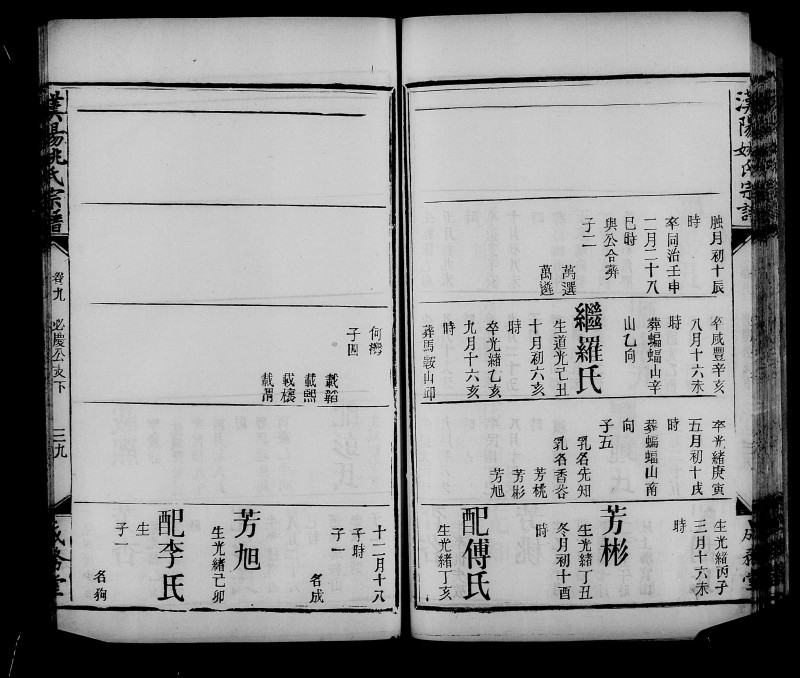 漢陽姚氏宗譜
成務堂
蝕月初十辰
時
卒同治壬申
二月二十八
巳時
與公合葬
子二
萬選
萬遴
卒咸豐辛亥
八月十六未
時
葬蝙蝠山辛
山乙向
繼羅氏
生道光己丑
十月初六亥
時
卒光緒乙亥
九月十六亥
時
葬馬鞍山卯
卒光緒庚寅
五月初十戌
時
葬蝙蝠山南
向
子五
乳名先知
乳名香苓
芳桃
芳彬
芳旭
生光緒丙子
三月十六未
時
芳彬
生光緒丁丑
冬月初十酉
時
配傅氏
生光緒丁亥
漢陽姚氏宗譜
卷九
必慶公支下
三九
成務堂
何灣
子四
載韜
載熙
載欀
載渭
十二月十八
子時
子一
名成
芳旭
生光緒己卯
配李氏
生
子一
名狗